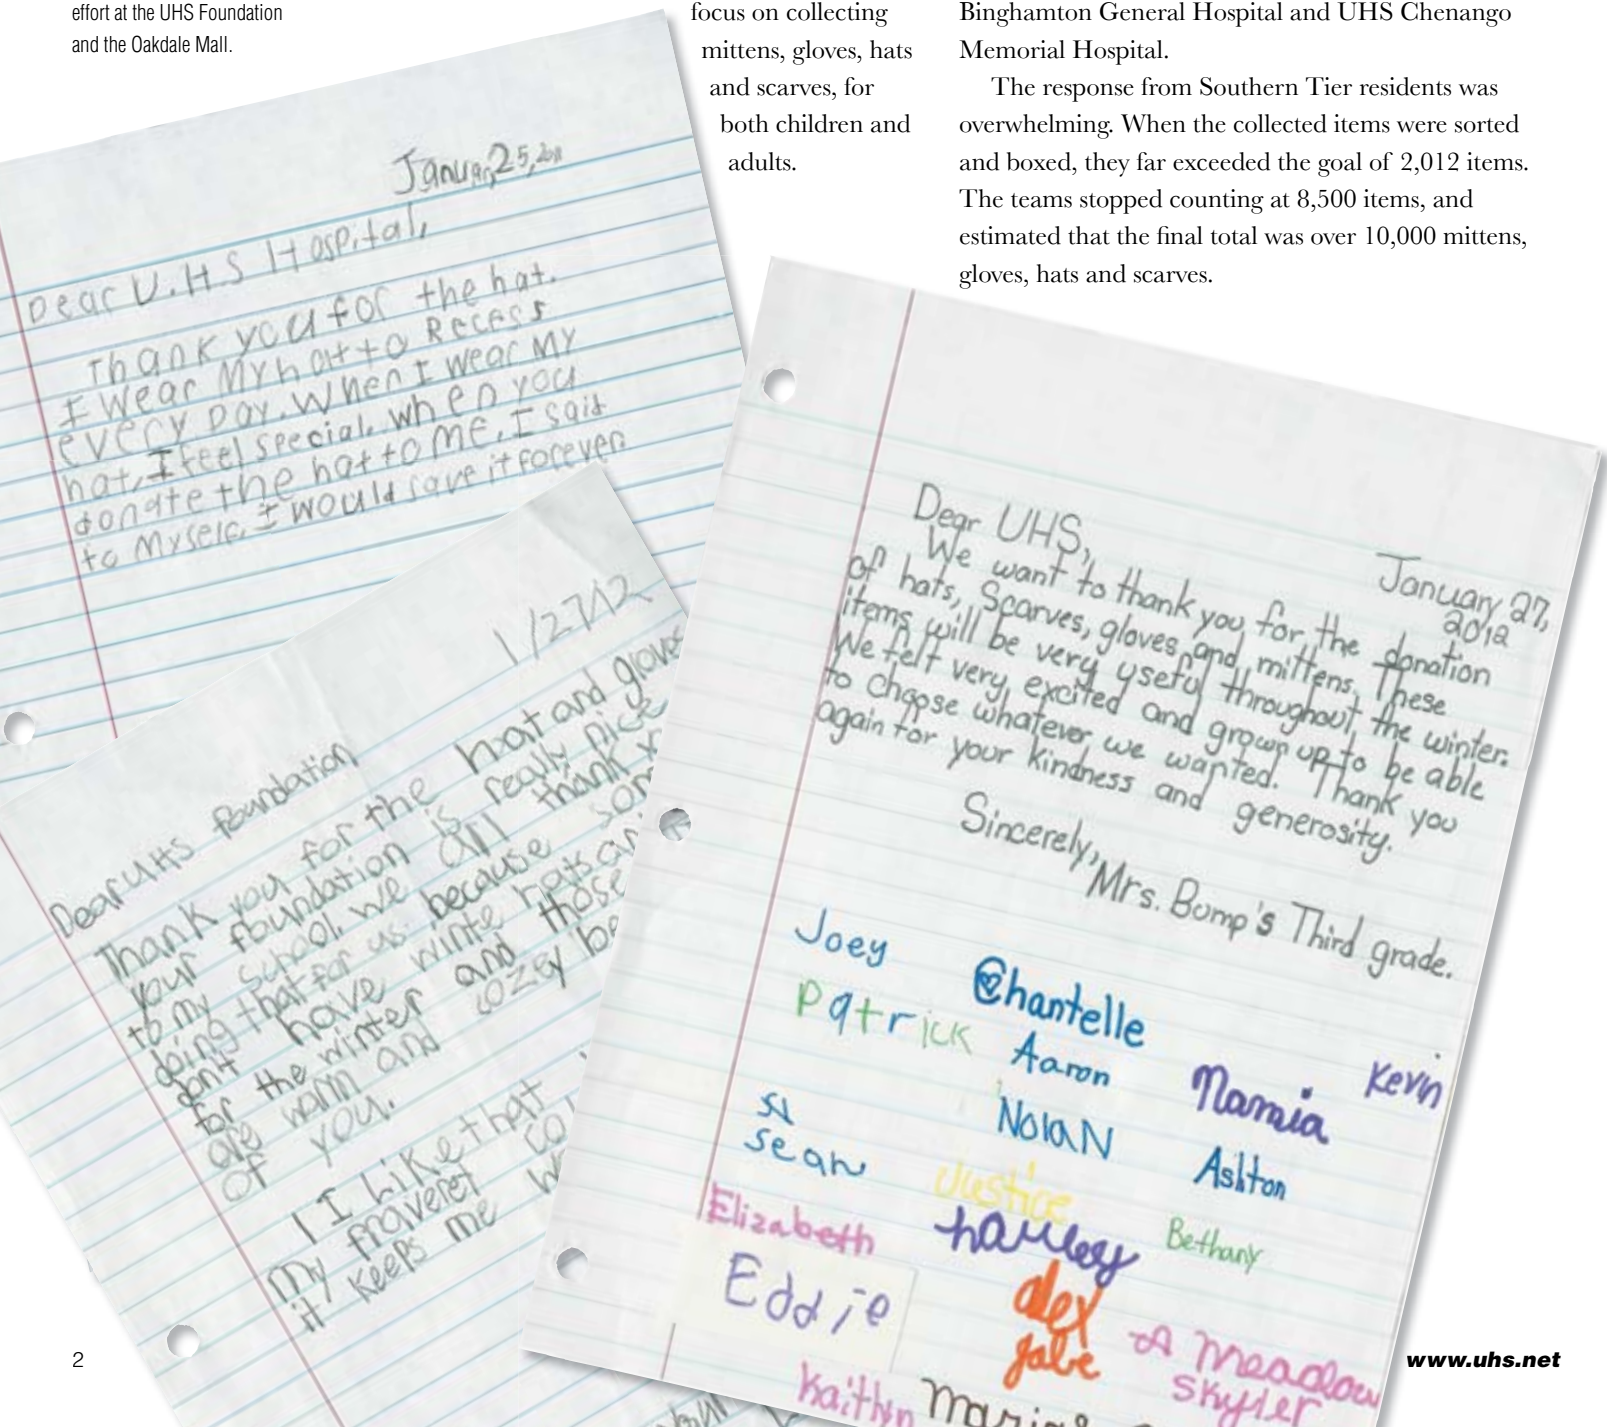 effort at the UHS Foundation
and the Oakdale Mall.
focus on collecting
mittens, gloves, hats
and scarves, for
both children and
adults.
Binghamton General Hospital and UHS Chenango
Memorial Hospital.
The response from Southern Tier residents was
overwhelming. When the collected items were sorted
and boxed, they far exceeded the goal of 2,012 items.
The teams stopped counting at 8,500 items, and
estimated that the final total was over 10,000 mittens,
gloves, hats and scarves.
Dear U.H.S Hospital,
Thank you for the hat.
I wear My hat to Recess
every Day. When I wear MY
hat, I feel special. when you
donate the hat to ME, I said
to Myself, I would save it forever.
1/27/12
Dear UHS foundation
Thank you for the hat and gloves
your foundation is really nice
to my school. we all thank
doing that for us because
don't have winte hats
for the winter and those
are warm and cozy
of you.
I Like that
my fraveret
it keeps me
January 27,
2012
Dear UHS,
We want to thank you for the donation
of hats, Scarves, gloves, and mittens. These
items will be very useful throughout the winter.
We felt very excited and grown up to be able
to choose whatever we wanted. Thank you
again for your kindness and generosity.
Sincerely,
Mrs. Bump's Third grade.
Joey
Chantelle
Patrick
Aaron
Kevin
Nolan
Sean
Ashton
Justice
Elizabeth
Bethany
Eddie
alex
gabe
Meadow
Skyler
Kaitlyn
2
www.uhs.net